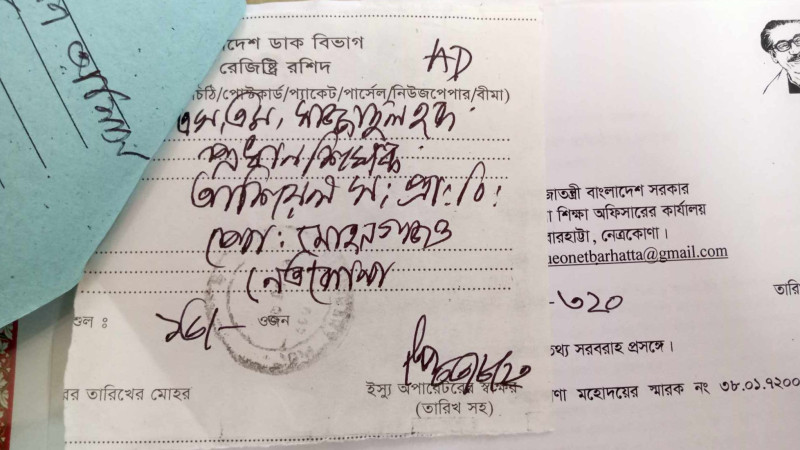 দেশ ডাক বিভাগ
রেজিস্ট্রি রশিদ
AD
চিঠি/পোস্টকার্ড/প্যাকেট/পার্সেল/নিউজপেপার/বীমা)
এস,এম, সাজ্জাদুল হক
প্রধান শিক্ষক
স: প্রা: বি:
পো: মোহনগঞ্জ
নেত্রকোণা
শুল :
ওজন
বর তারিখের মোহর
ইস্যু অপারেটরের স্বাক্ষর
(তারিখ সহ)
জাতন্ত্রী বাংলাদেশ সরকার
শিক্ষা অফিসারের কার্যালয়
বারহাট্টা, নেত্রকোণা।
ueonetbarhatta@gmail.com
-৩২০
তারি
তথ্য সরবরাহ প্রসঙ্গে।
ণা মহোদয়ের স্মারক নং ৩৮.০১.৭২০০